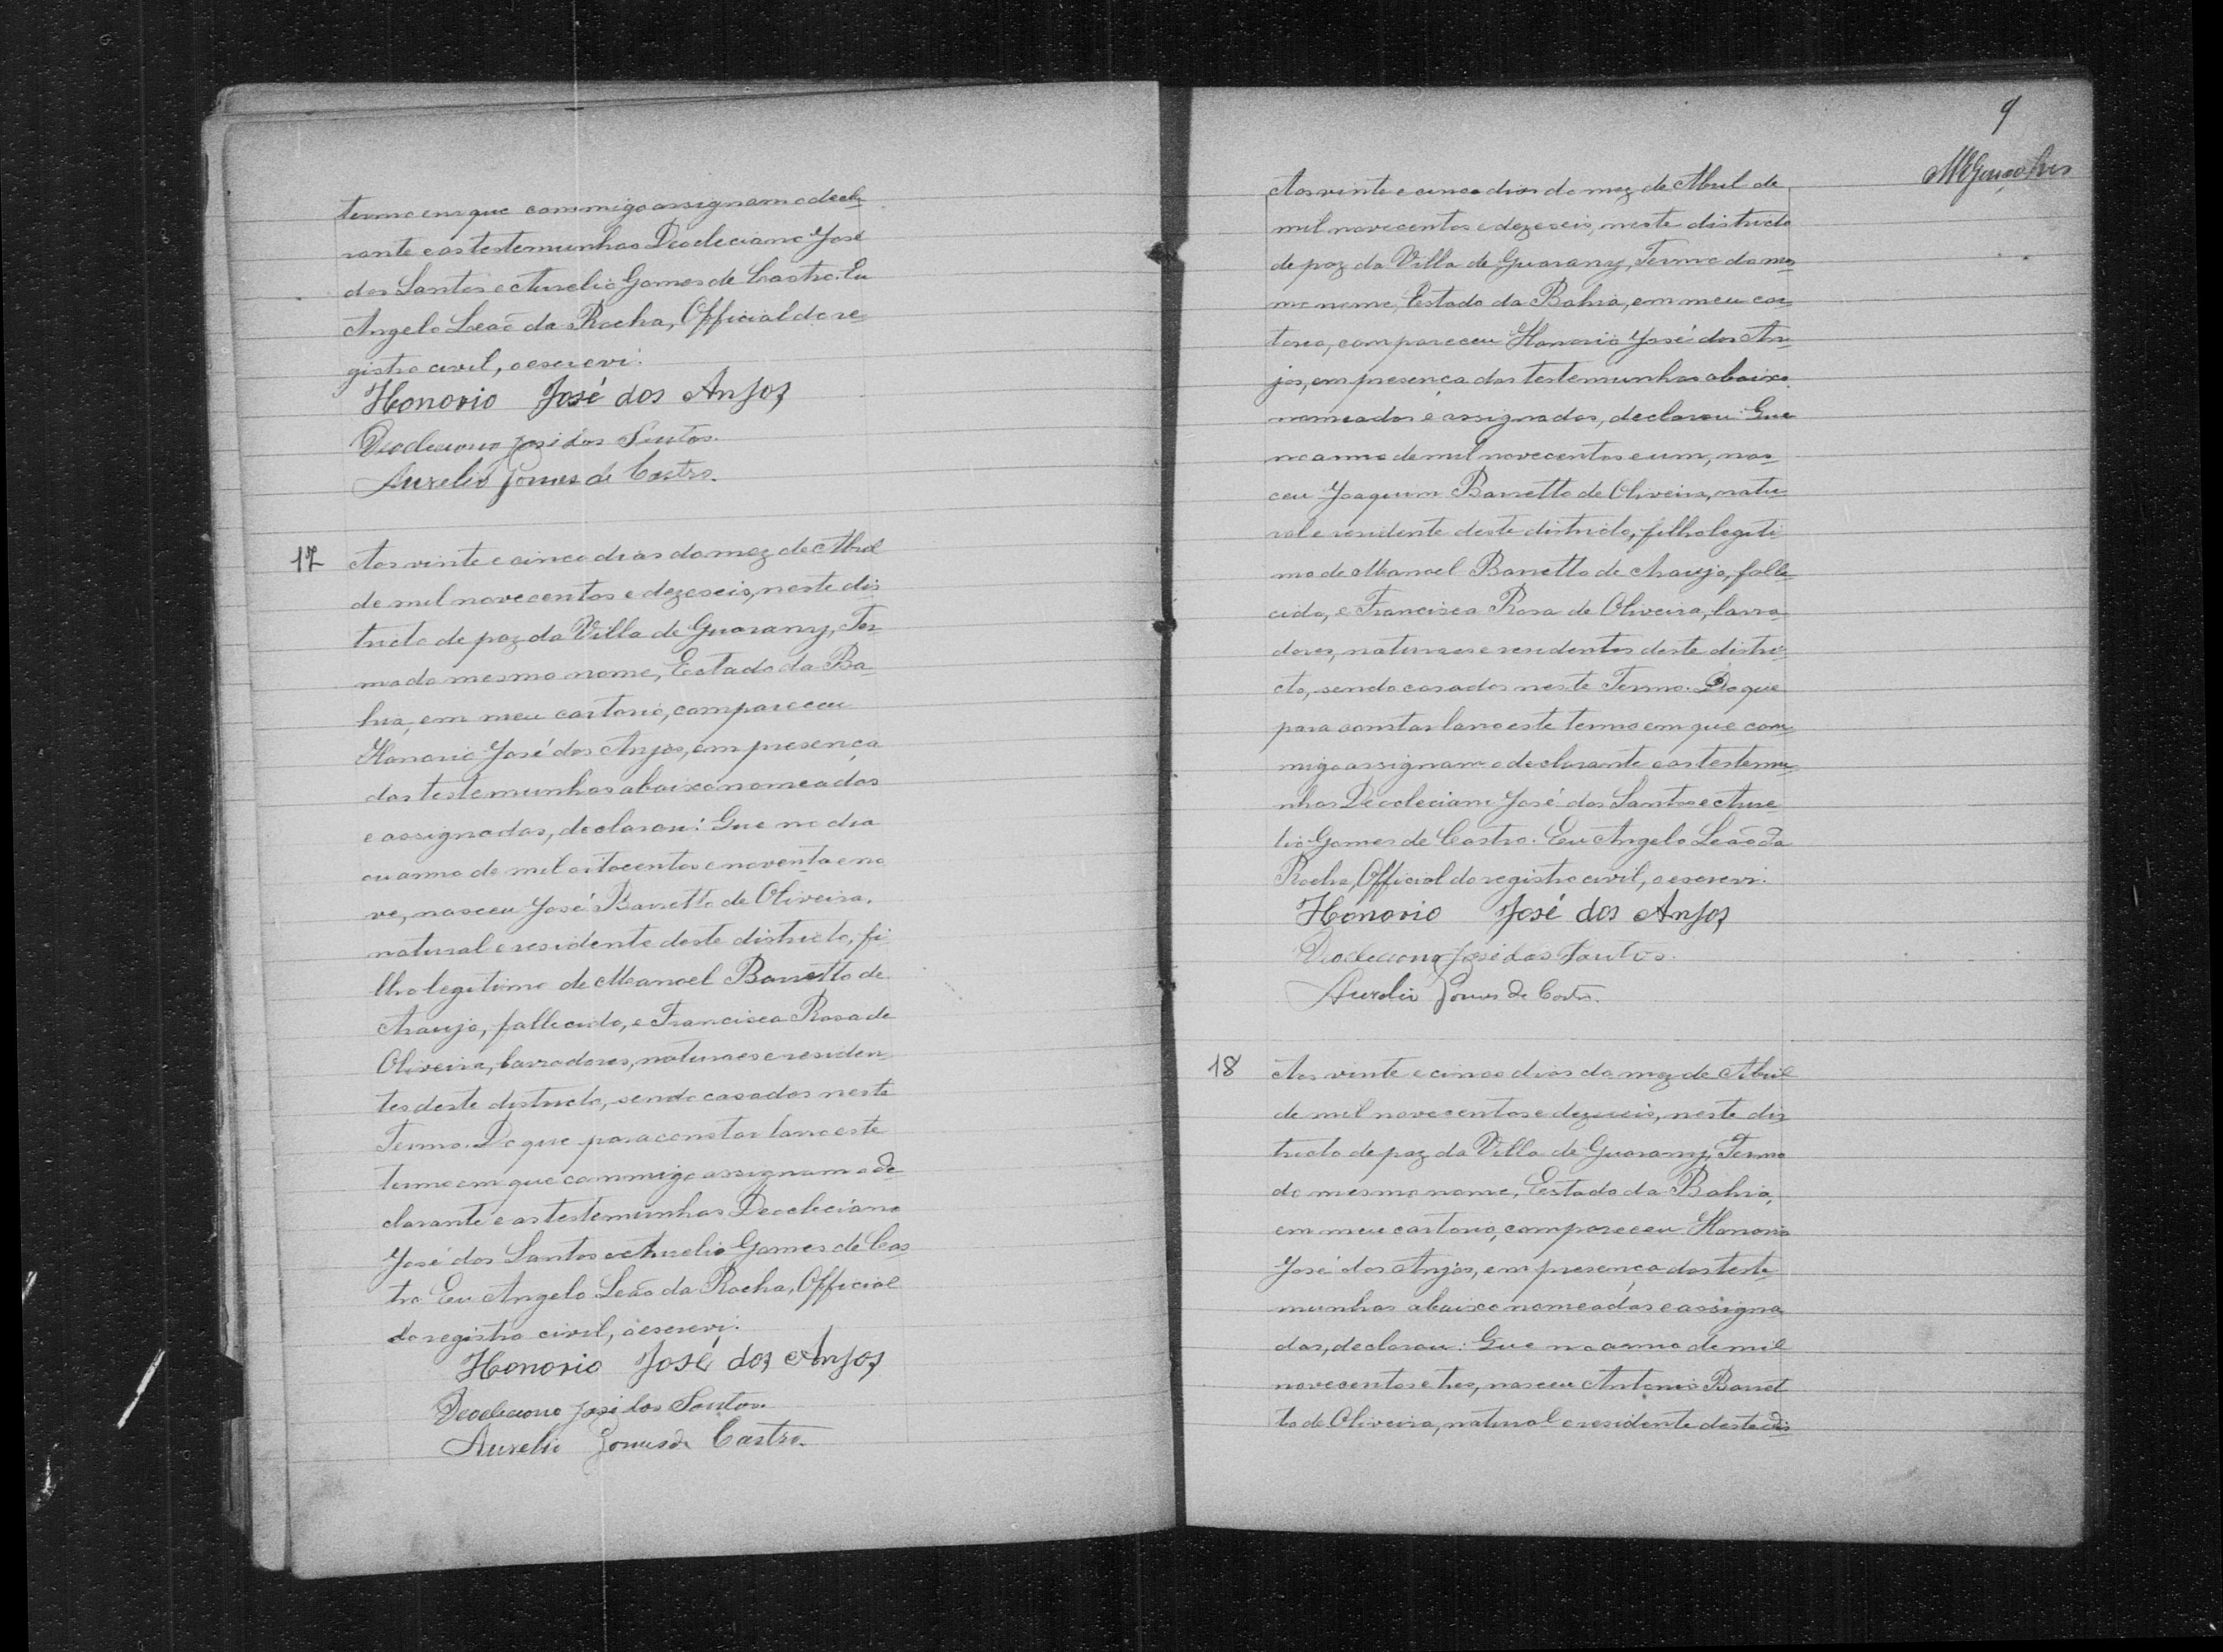 termo em que commigo assignam o decla-
rante e as testemunhas Deocleciano José
dos Santos e Aurelio Gomes de Castro. Eu
Angelo Leão da Rocha, Official do re-
gistro civil, o escrevi.
Honorio José dos Anjos
Deocleciano José dos Santos.
Aurelio Gomes de Castro.
17 Aos vinte e cinco dias do mez de Abril
de mil novecentos e dezeseis, neste dis-
tricto de paz da Villa de Guarany, Ter-
mo do mesmo nome, Estado da Ba-
hia, em meu cartorio, compareceu
Honorio José dos Anjos, em presença
das testemunhas abaixo nomeadas
e assignadas, declarou: Que no dia
ou anno de mil oitocentos e noventa e no
ve, nasceu José Barretto de Oliveira,
natural e residente deste districto, fi
lho legitimo de Manoel Barretto de
Araujo, fallecido, e Francisca Rosa de
Oliveira, lavradores, naturaes e residen-
tes deste districto, sendo casados neste
Termo. Do que para constar lavro este
termo em que commigo assignam o de-
clarante e as testemunhas Deocleciano
José dos Santos e Aurelio Gomes de Cas-
tro Eu Angelo Leão da Rocha, Official
do registro civil, o escrevi.
Honorio José dos Anjos
Deocleciano José dos Santos.
Aurelio Gomes de Castro.
9
MGonçalves
Aos vinte e cinco dias do mez de Abril de
mil novecentos e dezeseis, neste districto
de paz da Villa de Guarany, Termo do mes-
mo nome, Estado da Bahia, em meu car-
torio, compareceu Honorio José dos An-
jos, em presença das testemunhas abaixo
nomeadas e assignadas, declarou: Que
no anno de mil novecentos e um, nas-
ceu Joaquim Barretto de Oliveira, natu-
ral e residente deste districto, filho legiti
mo de Manoel Barretto de Araujo, falle-
cido, e Francisca Rosa de Oliveira, lavra-
dores, naturaes e residentes deste distri-
cto, sendo casados neste Termo. Do que
para constar lavro este termo em que com-
migo assignam o declarante e as testemu-
nhas Deocleciano José dos Santos e Aure-
lio Gomes de Castro. Eu Angelo Leão da
Rocha, Official do registro civil, o escrevi.
Honorio José dos Anjos
Deocleciano José dos Santos.
Aurelio Gomes de Castro.
18 Aos vinte e cinco dias do mez de Abril
de mil novecentos e dezeseis, neste dis-
tricto de paz da Villa de Guarany, Termo
do mesmo nome, Estado da Bahia,
em meu cartorio, compareceu Honorio
José dos Anjos, em presença das teste-
munhas abaixo nomeadas e assigna-
das, declarou: Que no anno de mil
novecentos e tres, nasceu Antonio Barret-
to de Oliveira, natural e residente deste dis-